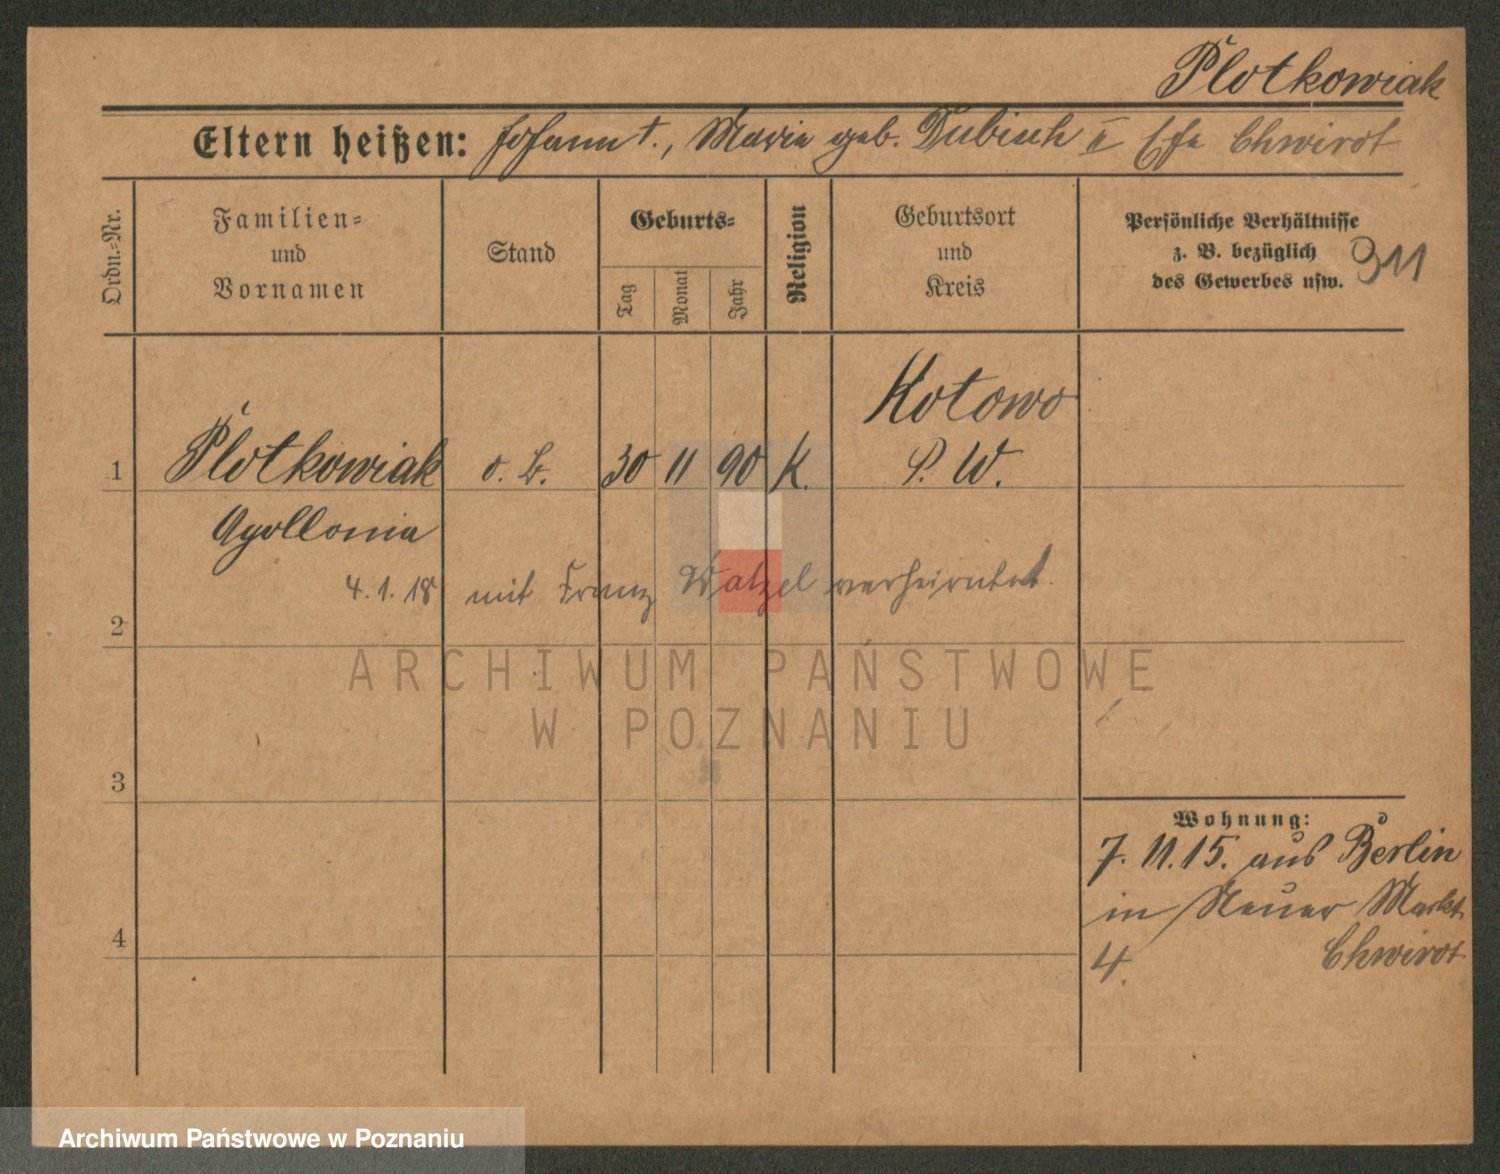 Plotkowiak
Eltern heißen: Johann †., Marie geb. Dubisch II Ehe Chwirot
Ordn.-Nr.
Familien-
und
Vornamen
Stand
Geburts-
Tag
Monat
Jahr
Religion
Geburtsort
und
Kreis
Persönliche Verhältnisse
z. B. bezüglich
des Gewerbes usw.
311
Kotowo
1 Plotkowiak o. B. 30 11 90 K. P. W.
Apollonia
4. 1. 18 mit Franz Watzel verheiratet.
2
ARCHIWUM PAŃSTWOWE
W POZNANIU
3
Wohnung:
7. 11. 15. aus Berlin
in Neuer Markt
4. Chwirot
4
Archiwum Państwowe w Poznaniu